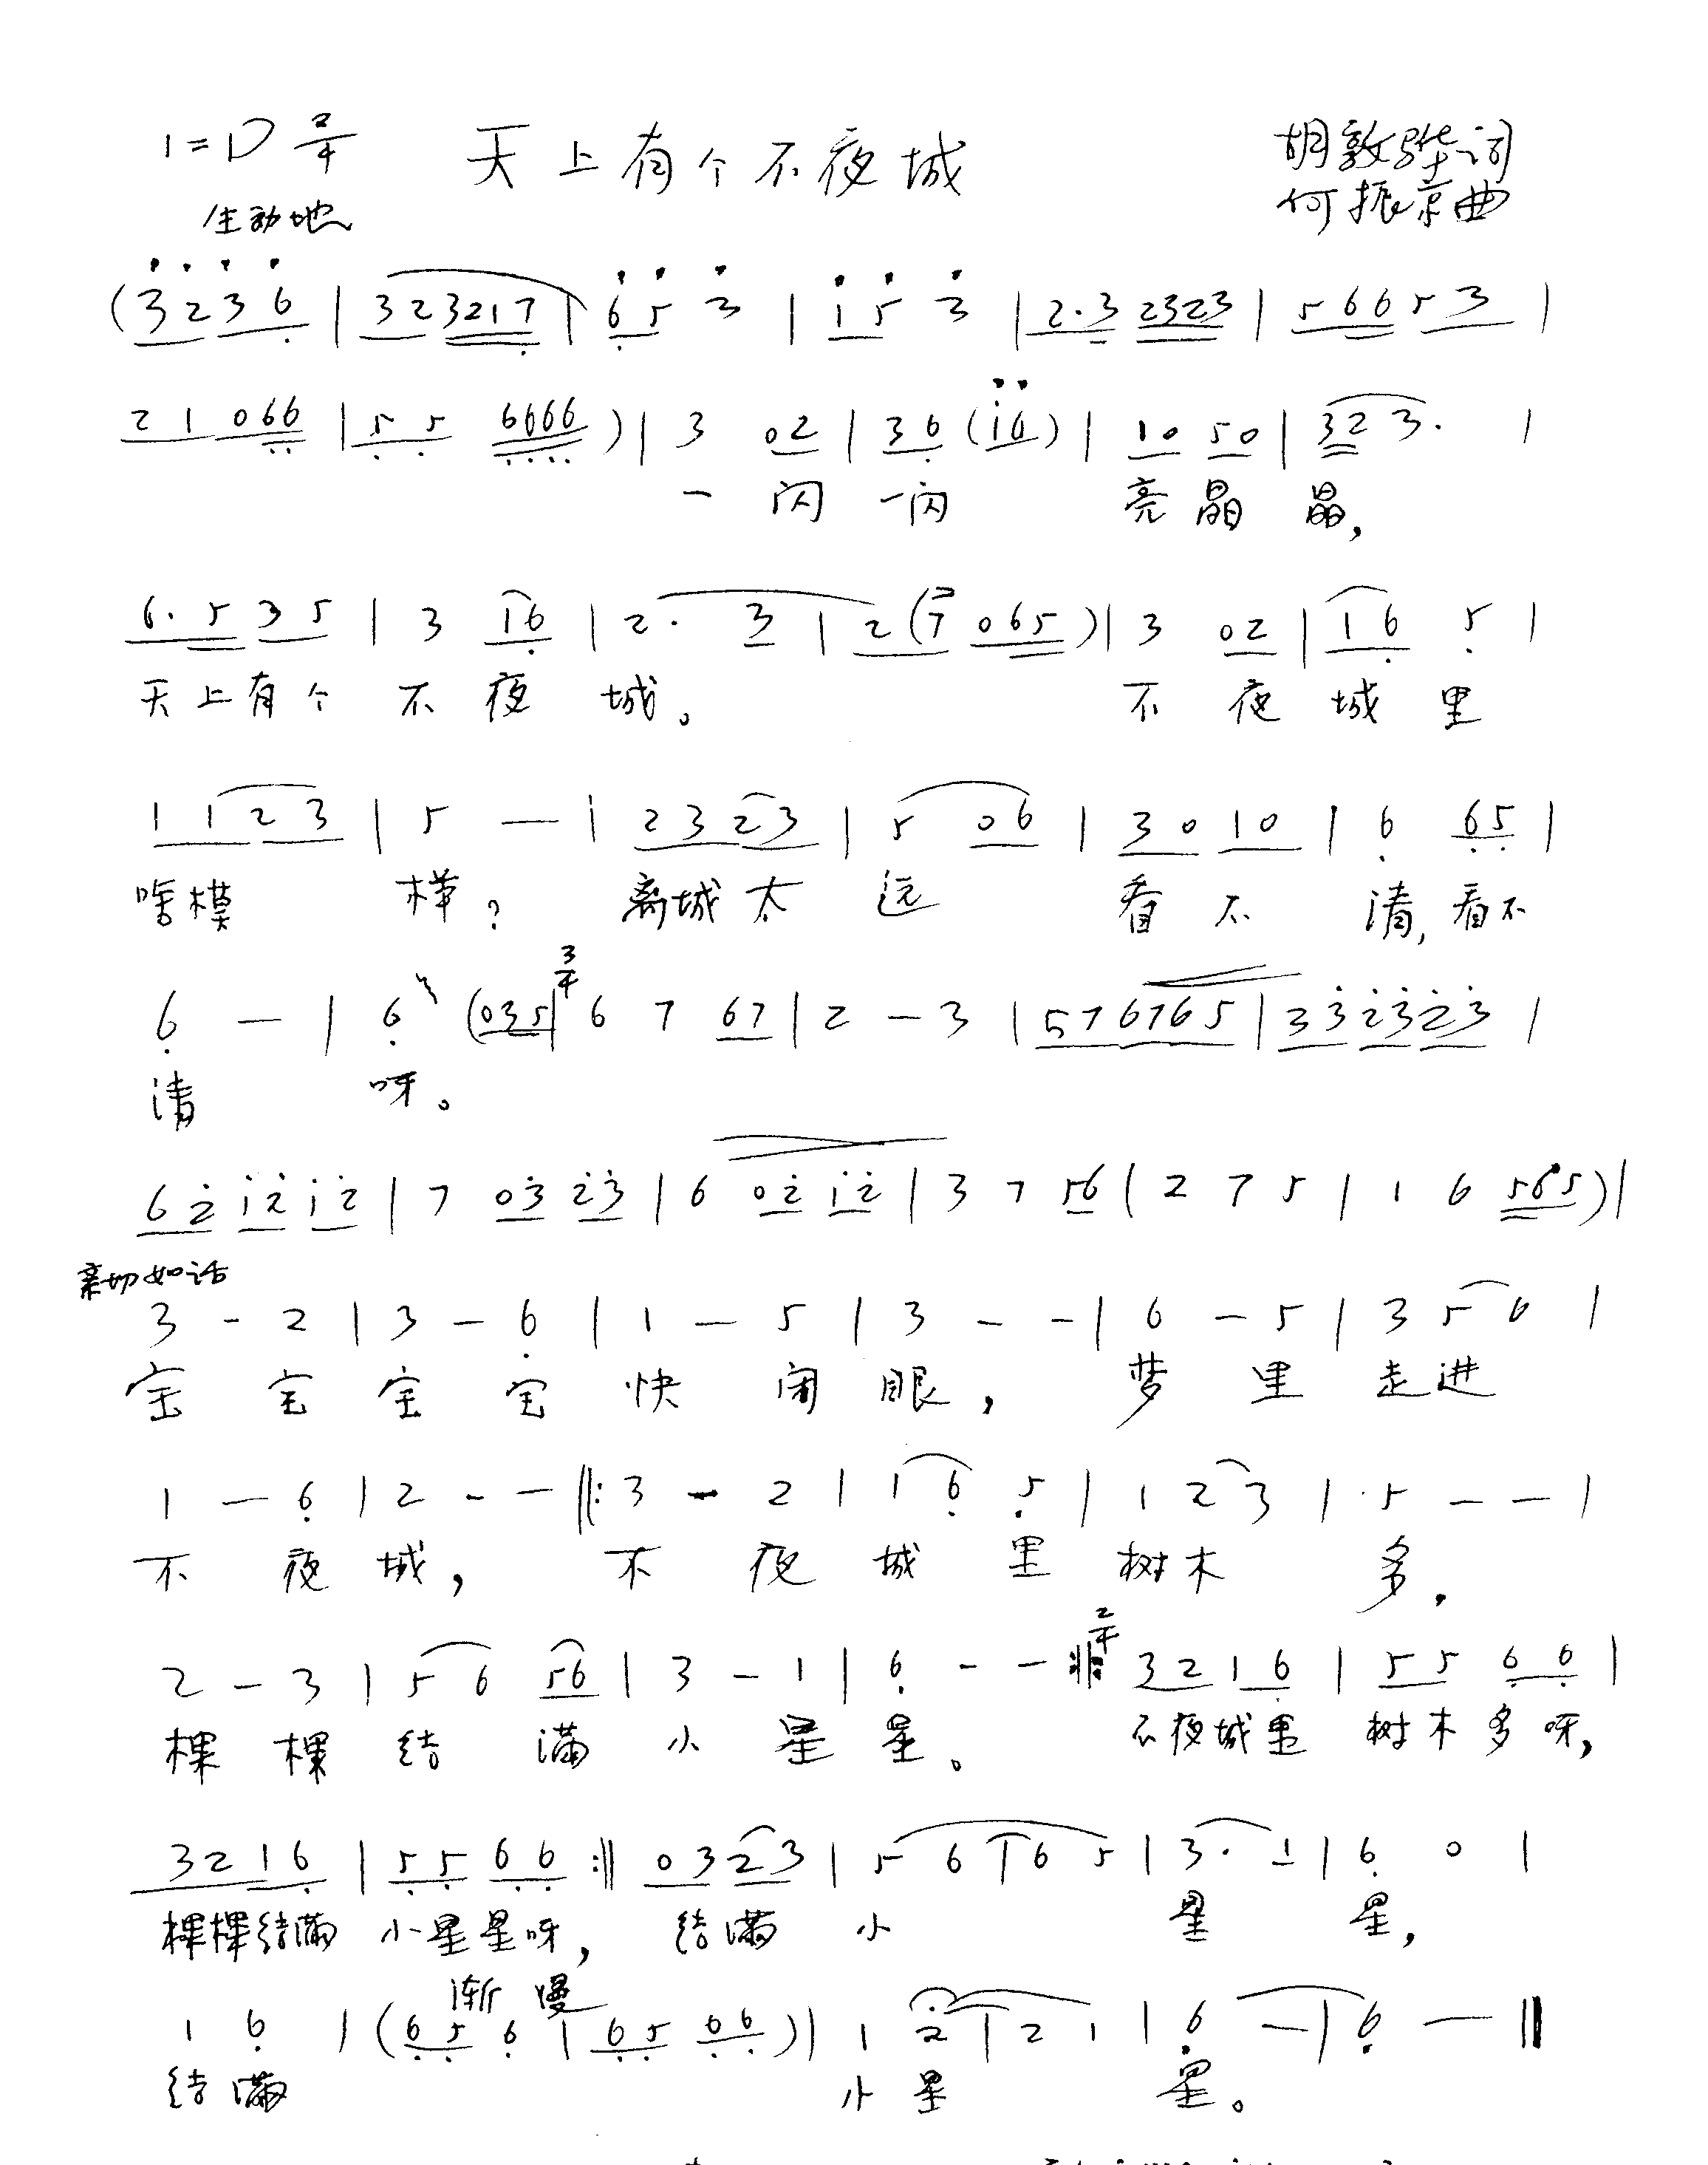 1=D 2/4 天上有个不夜城 胡敦骅词
生动地 何振京曲
(3 2 3 6 | 3 2 3 2 1 7 | 6 5 3 | 1 5 3 | 2·3 2 3 2 3 | 5 6 6 5 3 |
2 1 0 6 6 | 5 5 6 6 6 6 ) | 3 0 2 | 3 6 (i 6) | 1 0 5 0 | 3 2 3· |
一 闪 一闪 亮 晶 晶,
6· 5 3 5 | 3 1 6 | 2· 3 | 2 (7 0 6 5 ) | 3 0 2 | 1 6 5 |
天上有个 不 夜 城。 不 夜 城 里
1 1 2 3 | 5 — | 2 3 2 3 | 5 0 6 | 3 0 1 0 | 6 6 5 |
啥模 样? 离城太 远 看 不 清,看不
6 — | 6 (0 3 5 | 3/4 6 7 6 7 | 2 — 3 | 5 7 6 7 6 5 | 3 3 2 3 2 3 |
清 呀。
6 2 1 2 1 2 | 7 0 3 2 3 | 6 0 2 1 2 | 3 7 5 6 ( 2 7 5 | 1 6 5 6 5 ) |
亲切如话
3 - 2 | 3 — 6 | 1 — 5 | 3 - - | 6 — 5 | 3 5 6 |
宝 宝 宝 宝 快 闭 眼, 梦 里 走进
1 — 6 | 2 - — ‖: 3 - 2 | 1 6 5 | 1 2 3 | 5 — — |
不 夜 城, 不 夜 城 里 树木 多,
2 — 3 | 5 6 5 6 | 3 — 1 | 6 - — :‖: 2/4 3 2 1 6 | 5 5 6 6 |
棵 棵 结 满 小 星 星。 不夜城里 树木多呀,
3 2 1 6 | 5 5 6 6 :‖ 0 3 2 3 | 5 6 | 6 5 | 3· 1 | 6 0 |
棵棵结满 小星星呀, 结满 小 星 星,
渐慢
1 6 | (6 5 6 | 6 5 6 6 ) | 1 2 | 2 1 | 6 — | 6 — ‖
结满 小 星 星。